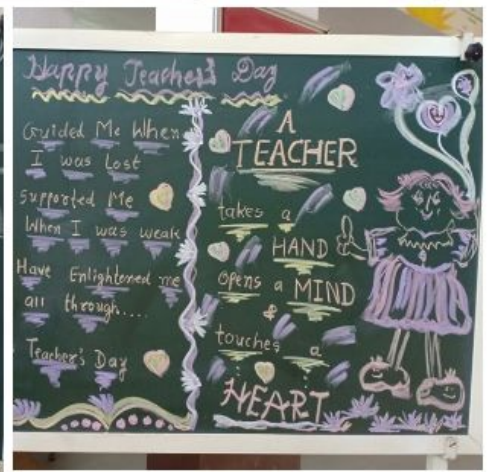 Happy Teacher's Day
Guided Me When
I was Lost
Supported Me
When I was weak
Have Enlightened me
all through....
Teacher's Day
A
TEACHER
takes a
HAND
opens a MIND
&
touches a
HEART